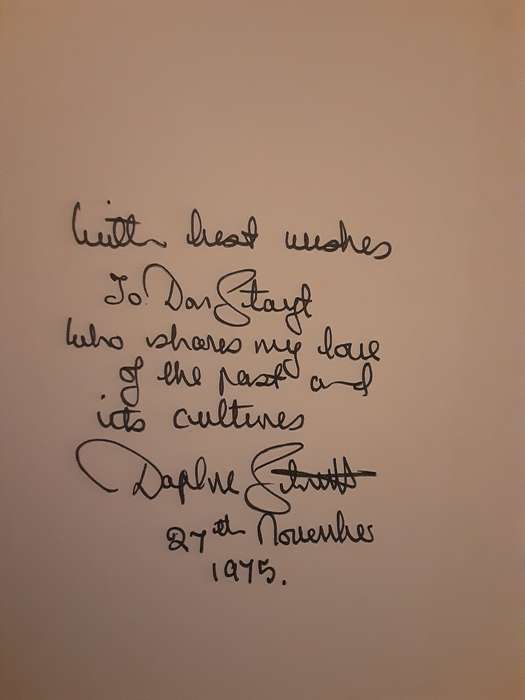 With best wishes
To Don Stayt
who shares my love
of the past and
its cultures
Daphne
27th November
1975.